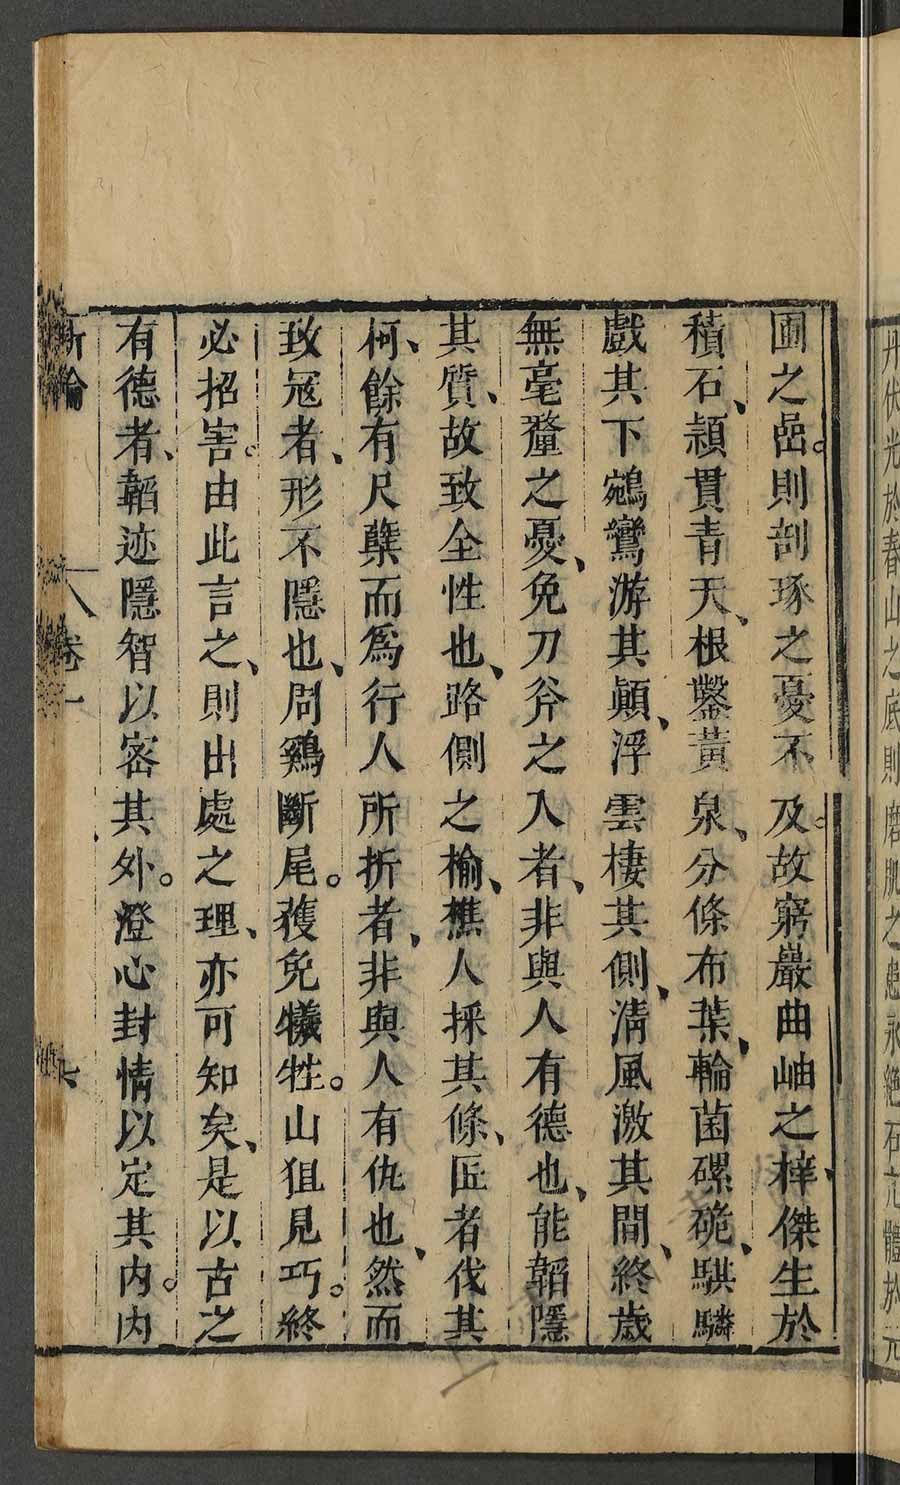 丹伏光於春山之底則磨肌之患永絕石亢體於元
圃之嵒。則剖琢之憂不及。故窮巖曲岫之梓、傑生於
積石、頴貫青天、根鑿黃泉、分條布葉、輪菌磥硊、騏驎
戲其下鵷鸞游其顚、浮雲棲其側、清風激其間、終歲
無毫釐之憂、免刀斧之入者、非與人有德也、能韜隱
其質、故致全性也、路側之榆、樵人採其條、匠者伐其
柯、餘有尺蘖而爲行人所折者、非與人有仇也、然而
致寇者、形不隱也、周鷄斷尾。獲免犧牲。山狙見巧。終
必招害。由此言之、則出處之理、亦可知矣、是以古之
有德者、韜迹隱智以密其外。澄心封情以定其內。內
新論 卷一 七